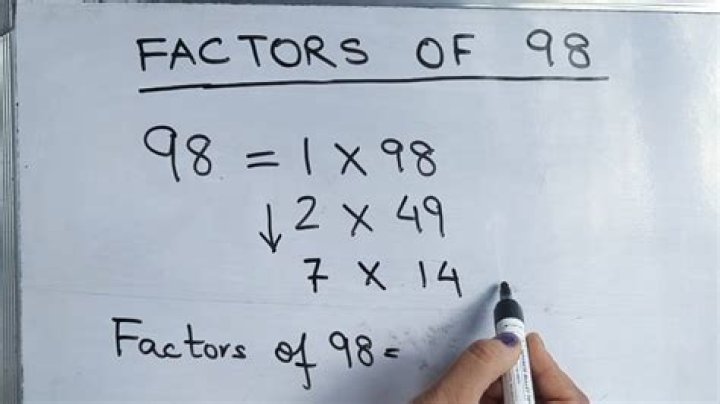 FACTORS OF 98
98 = 1 X 98
↓ 2 X 49
7 X 14
Factors of 98=